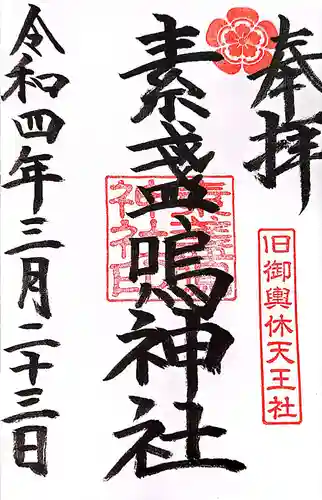 奉拝
旧御輿休天王社
素盞鳴神社
素盞鳴神社印
令和四年三月二十三日